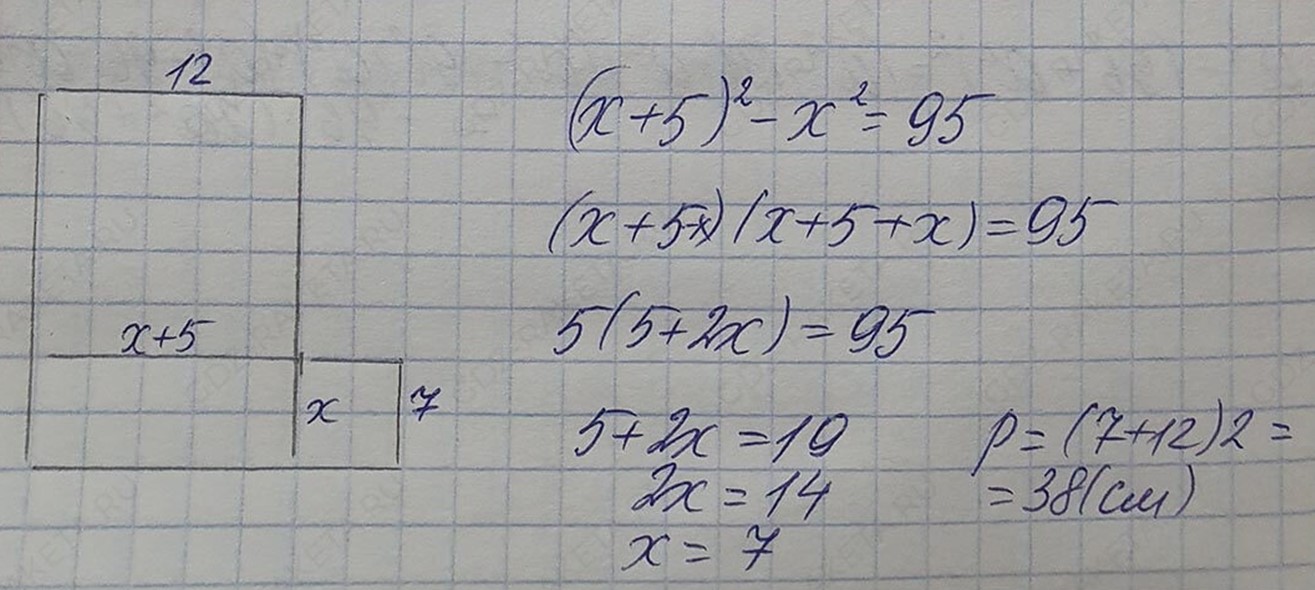 12
x+5
x
7
(x+5)²-x²=95
(x+5-x)(x+5+x)=95
5(5+2x)=95
5+2x=19
2x=14
x=7
p=(7+12)2=
=38(см)